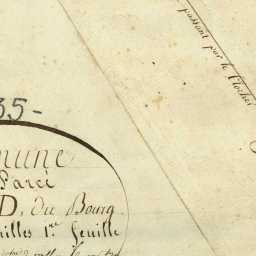 passant par le Clocher
35-
mune
Parcé
D, du Bourg
illes 1re feuille